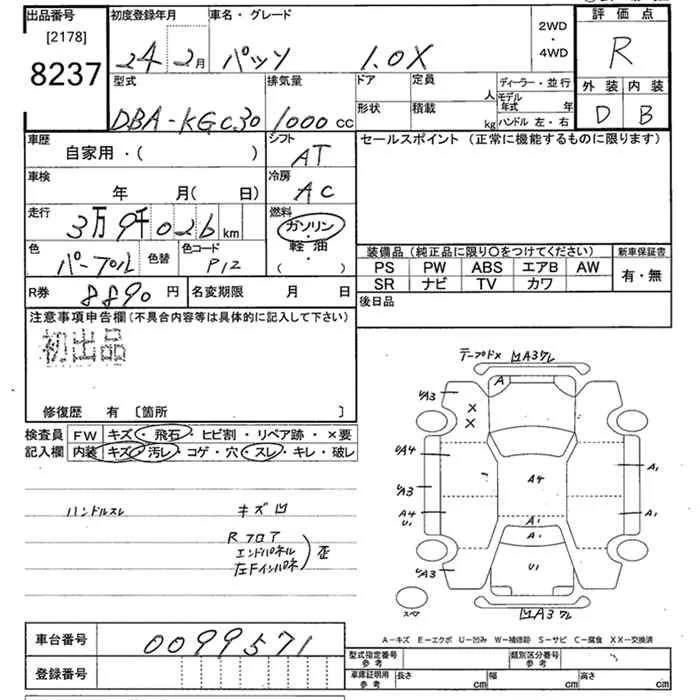 出品番号 初度登録年月 車名・グレード 2WD・4WD 評価点
[2178]
8237 24 2月 パッソ 1.0X R
型式 排気量 ドア 定員 人 ディーラー・並行 外装 内装
DBA-KGC30 1000cc 形状 積載 kg モデル年式 年 D B
ハンドル 左・右
車歴 シフト セールスポイント (正常に機能するものに限ります)
自家用・( ) AT
車検 冷房
年 月( 日) AC
走行 燃料
3万9千026km ガソリン・軽油・( )
色 色替 色コード
パープル P12
装備品 (純正品に限り○をつけてください) 新車保証書
PS PW ABS エアB AW 有・無
SR ナビ TV カワ
R券 8890円 名変期限 月 日 後日品
注意事項申告欄(不具合内容等は具体的に記入して下さい)
初出品
修復歴 有 [箇所 ]
検査員記入欄 FW キズ・飛石・ヒビ割・リペア跡・×要
内装 キズ・汚レ・コゲ・穴・スレ・キレ・破レ
ハンドルスレ キズ凹
Rフロア
エンドパネル
左Fインパネ
歪
テープドメ 凹A3ワレ
A
UA3
X
X
UA4
UA3
A4
U1
A4
A1
A1
A1
A1
U1
UA3
スペア
凹A3ワレ
A-キズ E-エクボ U-凹み W-補修跡 S-サビ C-腐食 XX-交換済
車台番号 0099571
登録番号
型式指定番号 参考 類別区分番号 参考
車庫証明用 参考 長さ cm 幅 cm 高さ cm